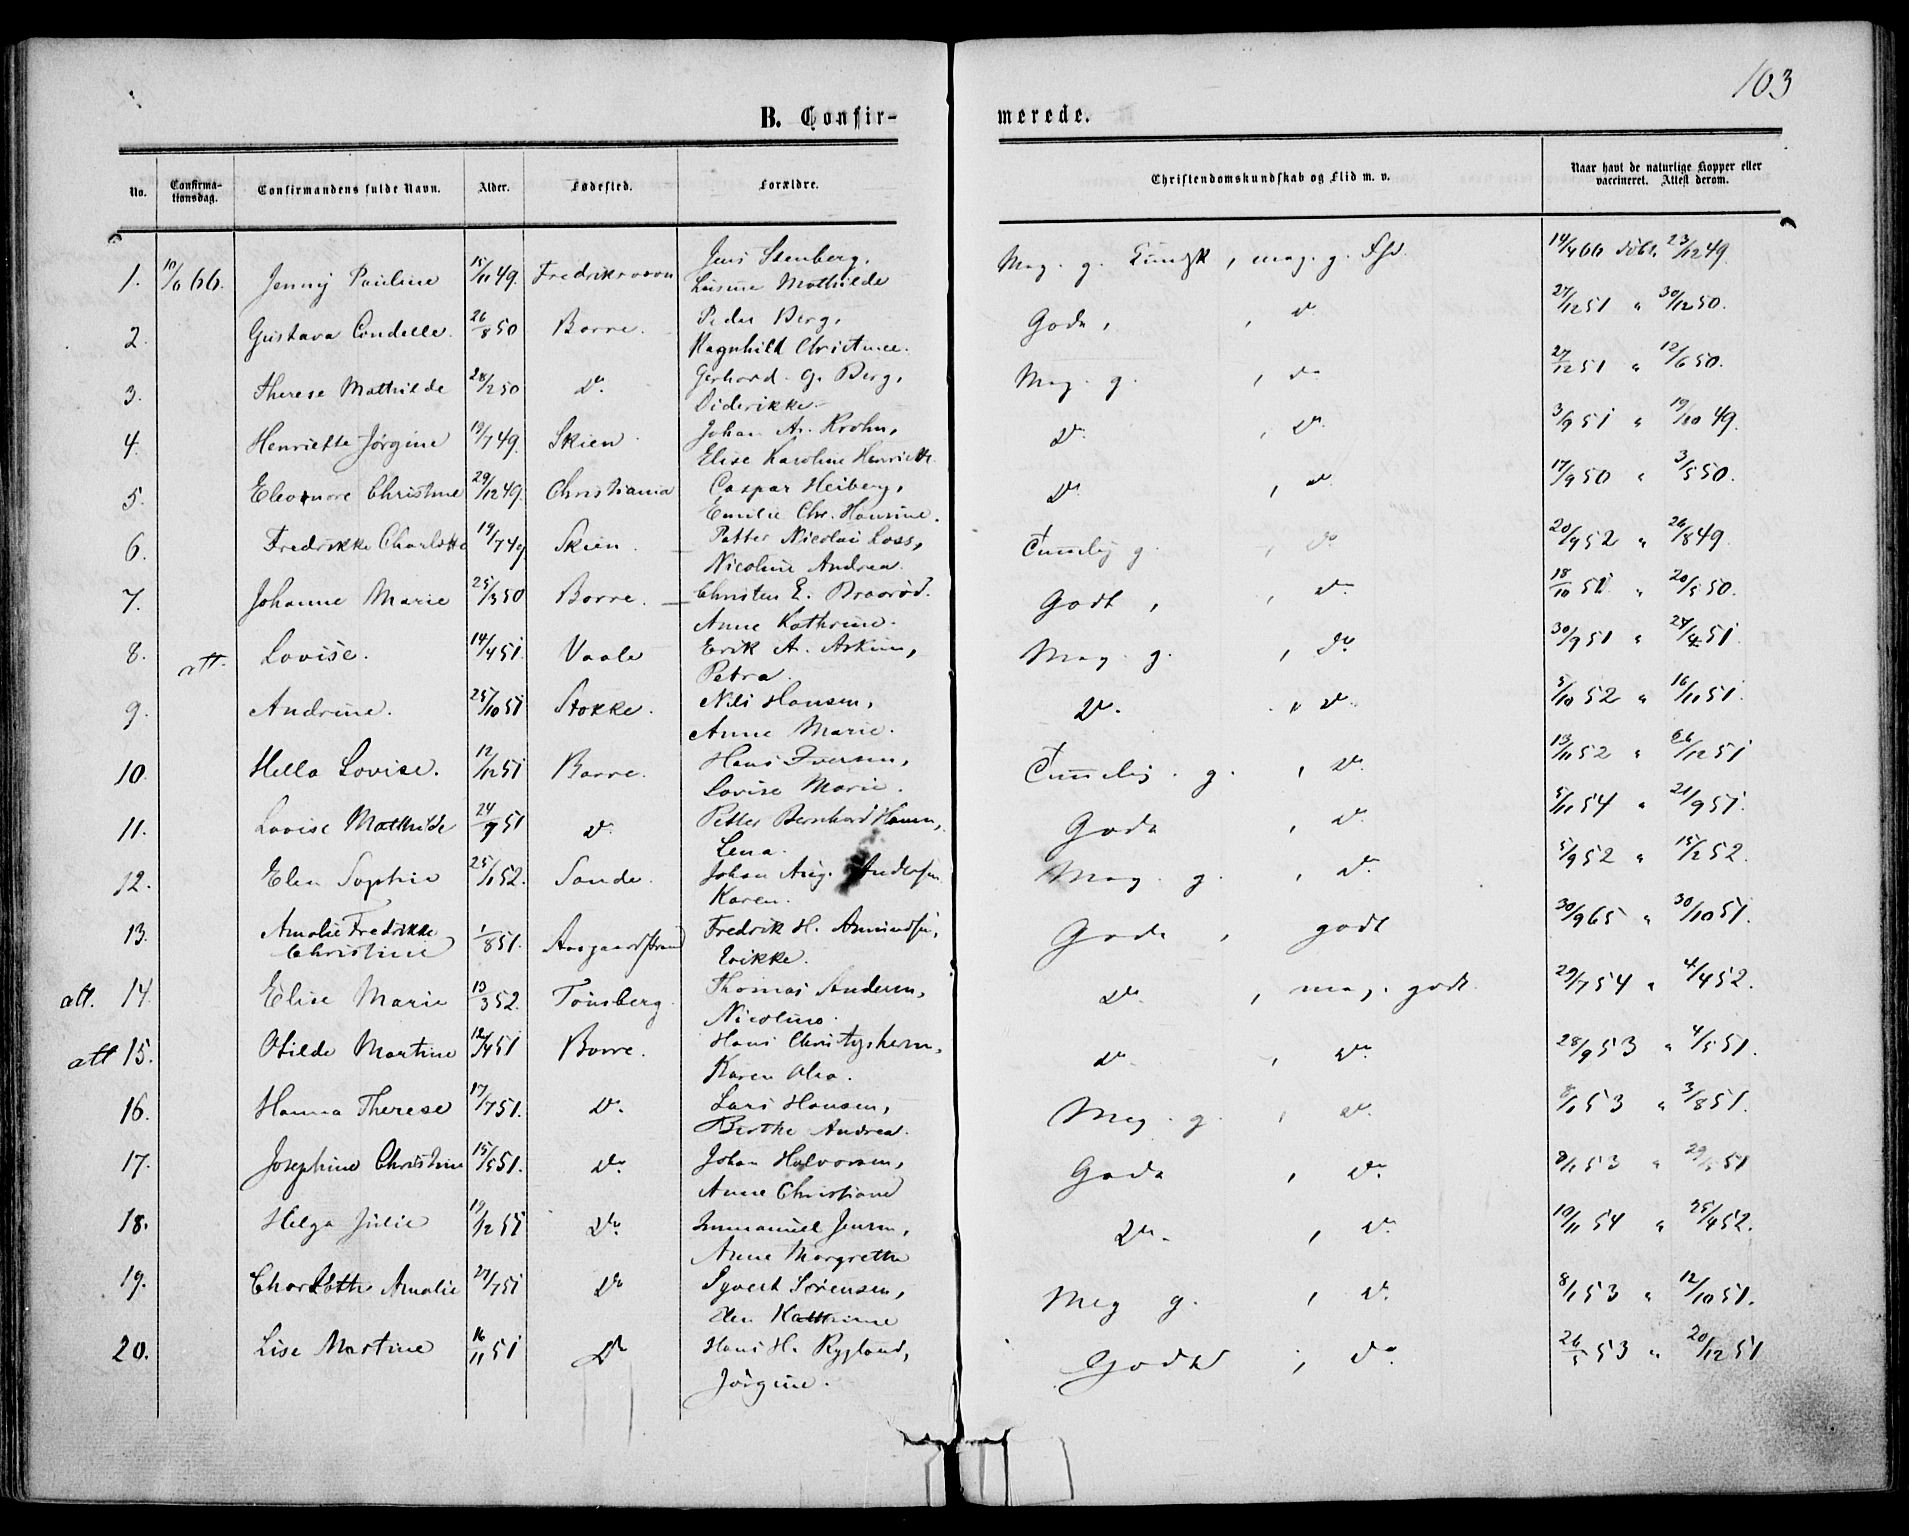 103
B. Confir-
merede.
No. Confirma-tionsdag. Confirmandens fulde Navn. Alder. Fødested. Forældre. Christendomskundskab og Flid m. v. Naar havt de naturlige Kopper eller vaccineret. Attest derom.
1. 66. Jenny Pauline 15/11 49. Fredriksværn Jens Stenberg, Mathilde Meg. g. Kundsk, meg. g. Fl. 14/4 66 døbt 23/12 49.
2. Gustava 26/8 50 Borre. Peder Berg, Ragnhild Christine. Gode, do 27/12 51 " 30/12 50.
3. Therese Mathilde 28/2 50 Do. Gerhard G. Berg, Diderikke. Meg. g. , do 27/12 51 " 12/6 50.
4. Henriette Jørgine 19/7 49. Skien. Johan A. Krohn, Elise Karoline Henriette. Do. , do. 3/9 51 " 19/10 49.
5. Eleonore Christine 29/12 49. Christiania Caspar Heiberg, Emilie Chr. Hansine. Do , do. 17/9 50 " 3/5 50.
6. Fredrikke Charlotte 19/7 49 Skien. Petter Nicolai Loss, Nicoline Andrea. Temlig g. , do 20/9 52 " 26/8 49.
7. Johanne Marie 25/3 50 Borre. Christen E. Braarød. Anne Kathrine. Godt , , do 18/10 51 " 20/5 50.
8. att. Lovise. 14/4 51. Vaale Erik A. Askim, Petra. Meg. g. , do 30/9 51 " 24/4 51.
9. Andrine. 25/10 51 Stokke. Nils Hansen, Anne Marie. Do. " do. 5/10 52 " 16/11 51.
10. Hella Lovise. 12/12 51 Borre. Hans Iversen, Lovise Marie. Temlig. g. , do. 13/11 52 " /12 51
11. Lovise Mathilde 24/9 51 do. Petter Bernhard Hansen, Lena. Gode , do. 5/11 54 " 21/9 51.
12. Elen Sophie 25/1 52. Sande. Johan Aug. Andersen Karen. Meg. g. , do. 5/9 52 " 15/2 52.
13. Amalie Fredrikke Christine 1/8 51. Aasgaardstrand Fredrik H. Amundsen, Erikke. Gode , godt 30/9 65 " 30/10 51.
att. 14. Elise Marie 13/3 52. Tønsberg. Thomas Andersen, Nicoline. Do , meg. godt. 29/7 54 " 4/4 52.
att 15. Otilde Martine 12/4 51 Borre. Hans Karen do. , do 28/9 53 " 4/5 51.
16. Hanna Therese 17/7 51. Do. Lars Hansen, Berthe Andrea. Meg. g. , do. 8/1 53 " 3/8 51.
17. Josephine Christine 15/5 51. Do. Johan Halvorsen, Anne Christiane Gode , do. 8/1 53 " 29/5 51
18. Helga Julie 19/12 51 Do. Immanuel Jensen, Anne Margrethe Do. , do. 19/11 54 " 25/4 52.
19. Charlotte Amalie 27/7 51 Do Syvert Sørensen, Elen Kathrine Meg g. , do. 8/1 53 " 12/10 51.
20. Lise Martine 16/11 51 Do Hans H. Rygland, Jørgine. Gode , do. 26/5 53 " 20/12 51